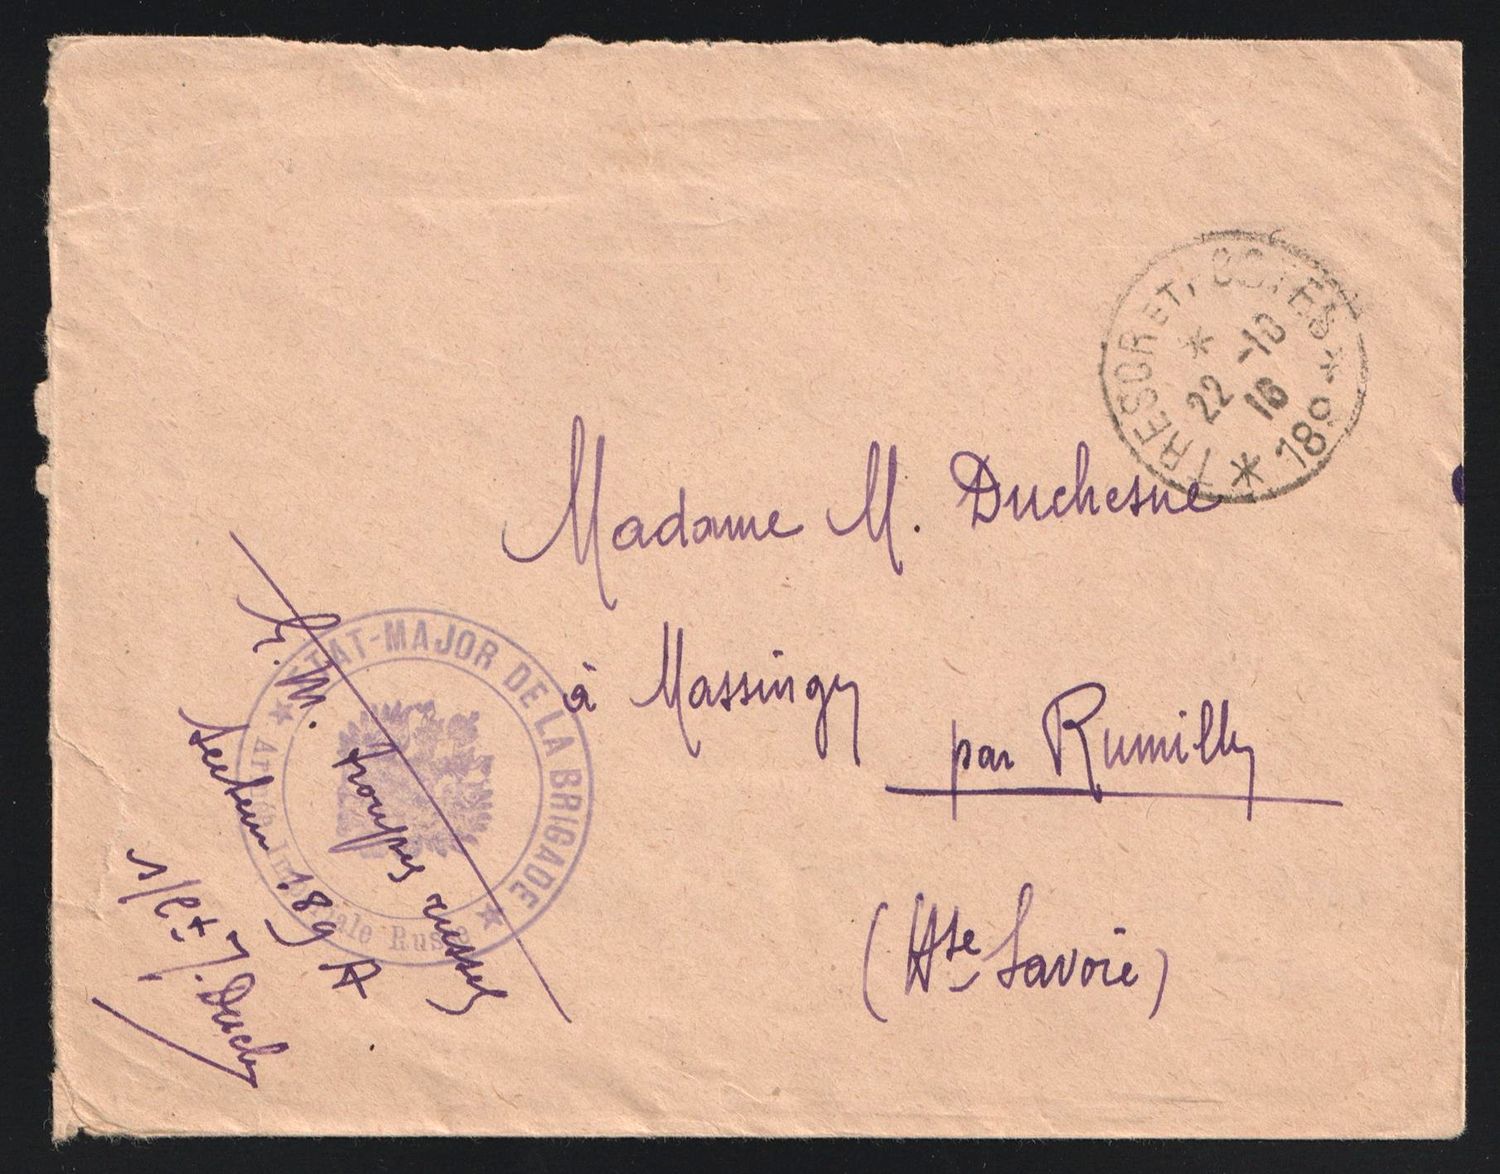 TRESOR ET POSTES
* 22 -10 16 *
* 189 *
Madame M. Duchesne
à Massingy
par Rumilly
(Hte Savoie)
ETAT-MAJOR DE LA BRIGADE
Armée Impériale Russe
E. M. troupes russes
secteur 189 A
s/Lt J. Duch